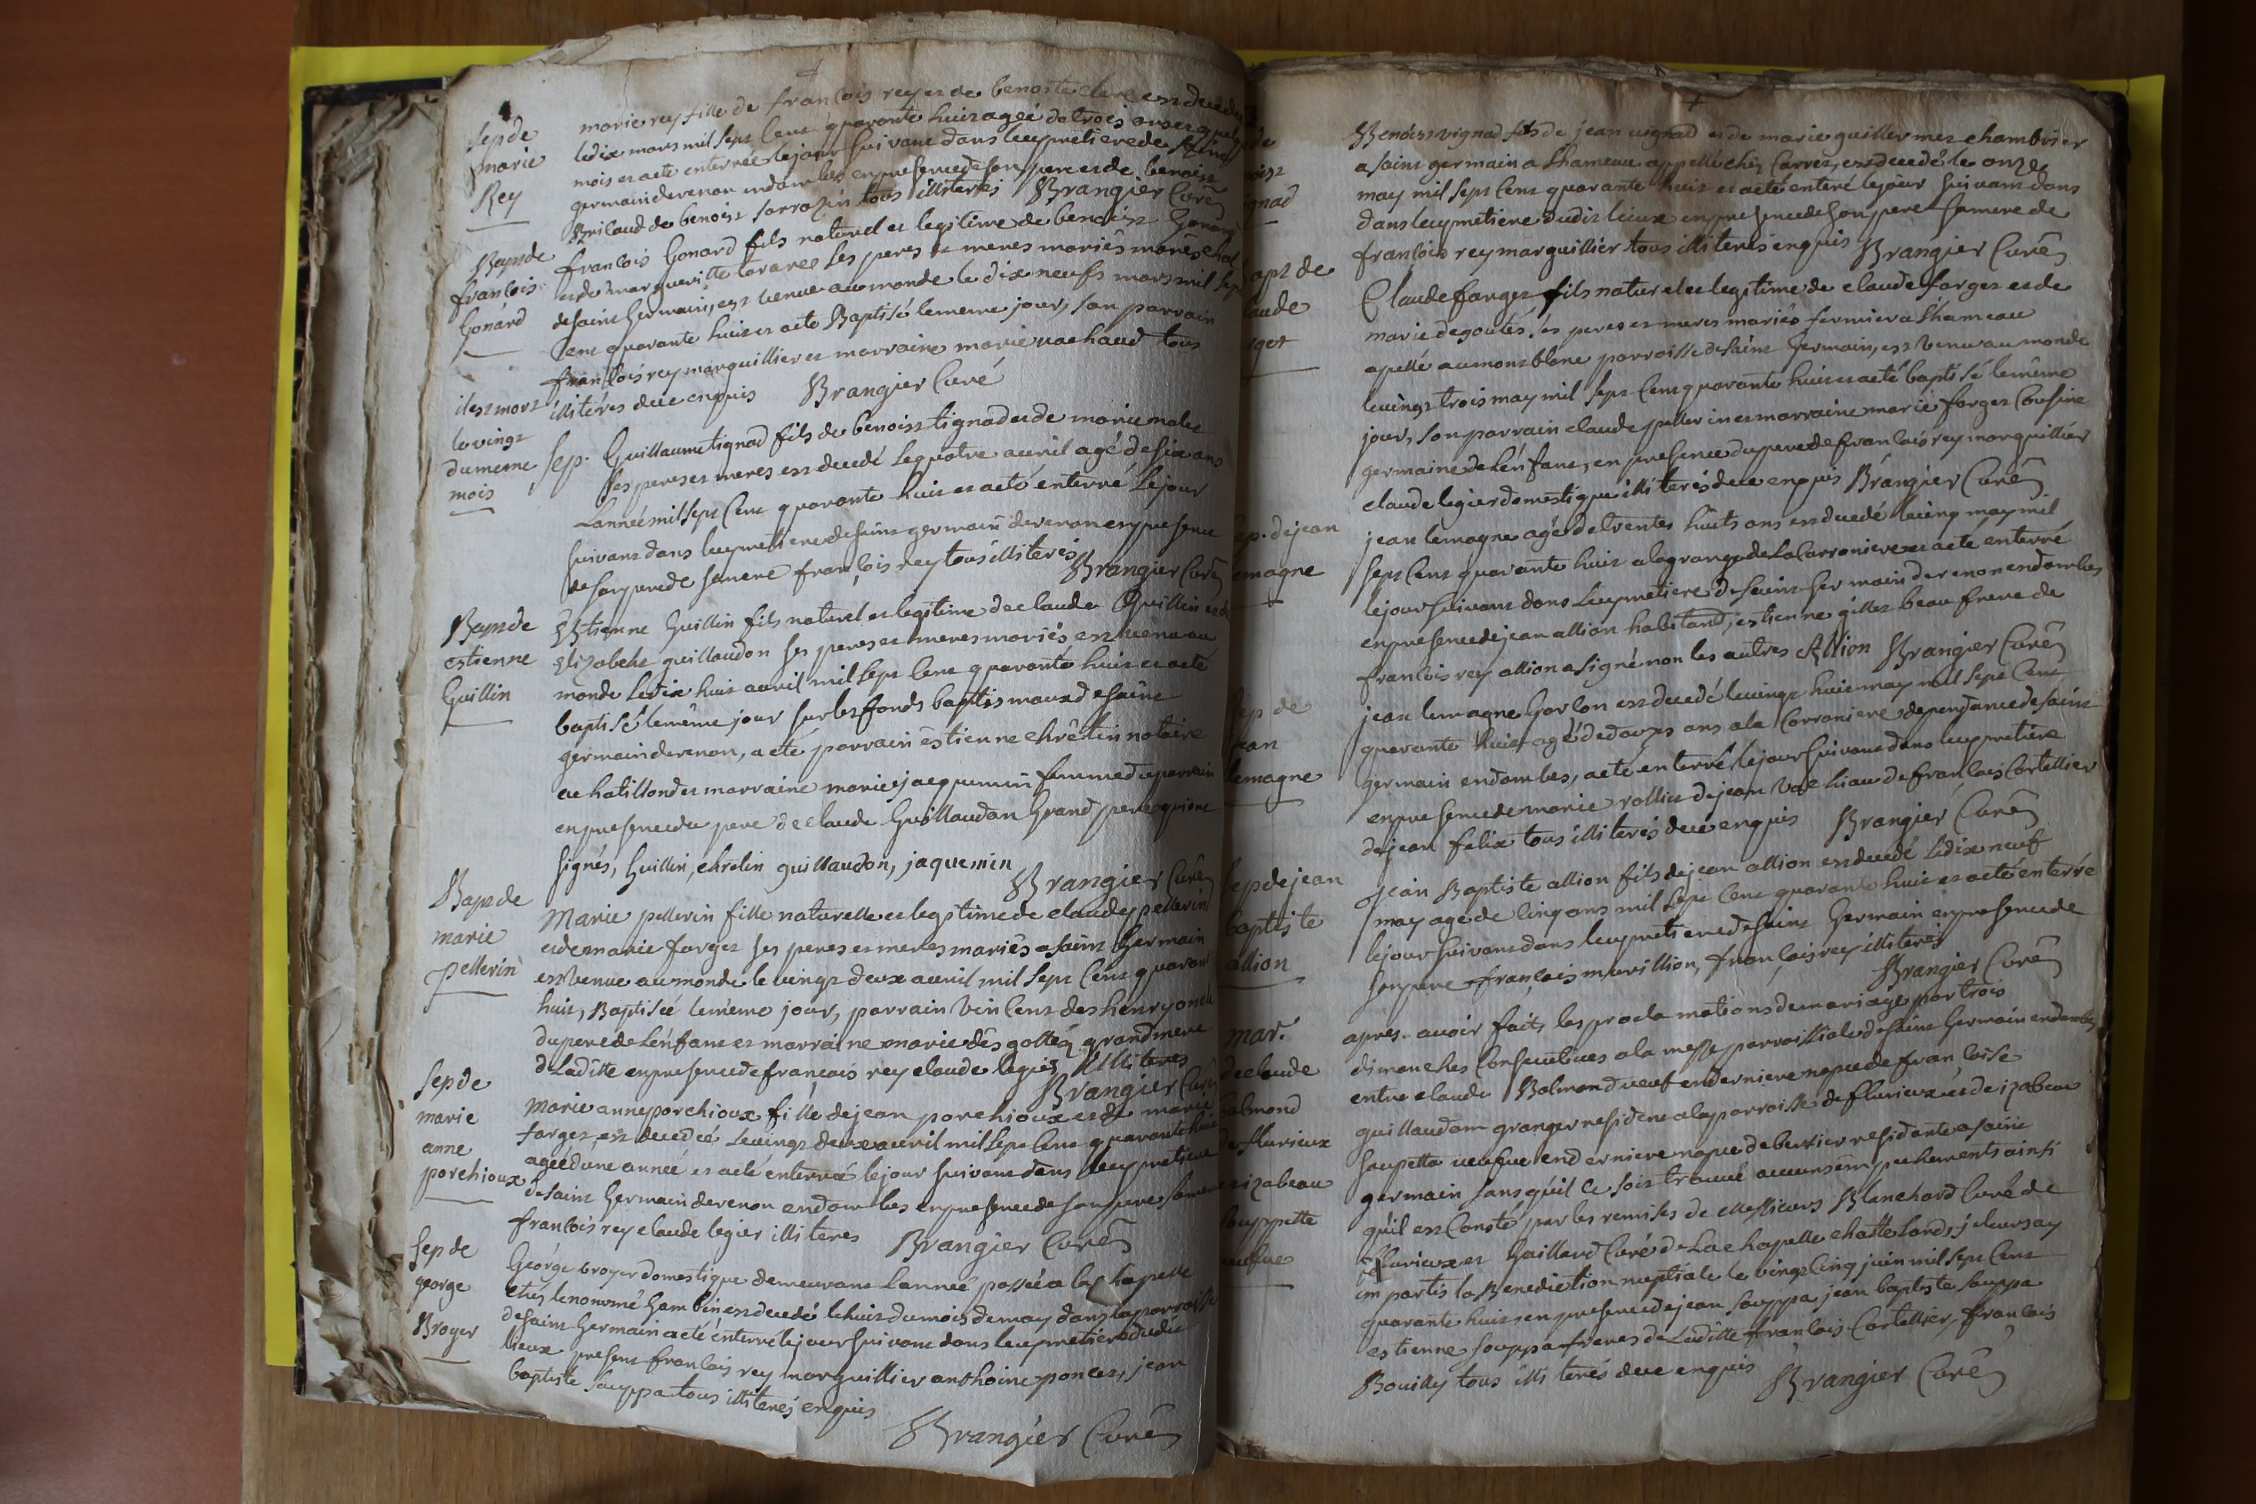 Sep de
marie
Rey
marie rey fille de francois rey et de benoite clere est decedee
le dix mars mil sept cent quarante huit agée de trois ans et quelq
mois et a eté enterrée le jour suivant dans le cymetiere de saint
germain de renon en dombes en presence de son pere et de benoist
Brilaud de benoist sarrazin tous illiterés Brangier Curé
Bap de
françois
Gonard
françois Gonard fils naturel et legitime de benoist Gonard
et de margueritte tavares ses peres et meres mariés
de saint Germain, est venue au monde le dix neufs mars mil sep
cent quarante huit et a eté Baptisé le meme jour, son parrain
francois rey marguillier et marraine marie vachaud tous
illitérés de ce enquis Brangier Curé
il est mort
le vingt
du meme
mois
Sep. Guillaume tignad fils de benoist tignad et de marie
ses peres et meres est decedé le quatre avril agé de six ans
Lannée mil sept Cent quarante huit et a eté enterré Le jour
suivant dans le cymetiere de saint germain de renon en presence
de son pere de sa mere françois rey tous illiterés Brangier Curé
Bap de
estienne
Guillin
Estienne Guillin fils naturel et legitime de claude Guillin et de
Elizabeht guillaudon ses peres et meres mariés est venu au
monde le dix huit avril mil sept Cent quarante huit et a eté
baptisé le même jour sur les fonds baptismaux de saint
germain de renon, a eté parrain estienne chrêtin notaire
a chatillond et marraine marie jacquemin femme du parrain
en presence du pere de claude Guillaudon Grand pere qui ont
signés, Guillin, chrêtin guillaudon, jaquemin
Brangier Curé
Bap de
marie
pellerin
Marie pellerin fille naturelle et legitime de claude pellerin
et de marie farget ses peres et meres mariés a saint Germain
est venue au monde le vingt deux avril mil sept Cent quarant
huit, Baptiséé le méme jour, parrain vincent des henry oncle
du pere de Lénfant et marraine marie dés gottéz grand mere
de Laditte en presence de francois rey claude legier illiteres
Brangier Curé
Sep de
marie
anne
porchioux
Marie anne porchioux fille de jean porchioux et de marie
farget est decedeé le vingt deux avril mil sept Cent quarante huit
ageé d'une anneé et a eté enterreé le jour suivant dans le cymetiere
de saint Germain de renon en dombes en presence de son pere sa mere
francois rey claude legier illiteres Brangier Curé
Sep de
george
Broyer
George broyer domestique demeurant Lanneé passeé a la chapelle
chez le nommé Gambin est decedé le huit du mois de may dans la parroisse
de saint Germain a eté enterré le jour suivant dans le cymetiere dudit
lieux present francois rey marguillier anthoine poncet, jean
baptiste souppa tous illiterés enquis
Brangier Curé
de
noist
ignad
Benoist vignad fils de jean vignad et de marie guillermet chambrier
a saint germain a Lhameau appellé chez Curret, est decedé le onze
may mil sept Cent quarante huit et a eté enteré le jour suivant dans
dans le cymetiere dudit lieux en presence de son pere sa mere de
francois rey marguillier tous illiterés enquis Brangier Curé
bapt de
laude
rget
Claude farget fils naturel et legitime de claude farget et de
marie degoutés ses peres et meres mariés fermier a Lhameau
apellé au mont blanc parroisse de saint Germain, est venu au monde
le vingt trois may mil sept Cent quarante huit et a eté baptisé le même
jour, son parrain claude pellerin et marraine marie farget Cousine
germaine de Lénfant, en presence du pere de francois rey marguillier
claude legier domestique illiterés de ce enquis Brangier Curé
ep. de jean
emagne
jean lemagne agé de trentes huits ans est decedé le cinq may mil
sept Cent quarante huit a la grange de La Carroniere et a eté enterré
le jour suivant dans Le cymetiere de saint Germain de renon en dombes
en presence de jean allion habitand, estienne gillet beau frere de
francois rey allion a signé non les autres Allion Brangier Curé
sep de
jean
lemagne
jean lemagne Garcon est decedé le vingt huit may mil sept Cent
quarante huit agé de douzes ans a la Carroniere dependance de saint
germain en dombes, a eté enterré le jour suivant dans le cymetiere
en presence de marie rollin de jean vachiau de francois Cortellier
de jean felix tous illiterés de ce enquis Brangier Curé
sep de jean
baptiste
allion
Jean Baptiste allion fils de jean allion est decedé Le dix neuf
may agé de Cinq ans mil sept Cent quarante huit et a eté enterré
le jour suivant dans le cymetiere de saint Germain en presence de
son pere francois muvillion, francois rey illiterés
Brangier Curé
mar.
de claude
balmond
de fluvieux
et izabeau
souppette
veufve
apres avoir fait, les proclamations de mariage par trois
dimanches Consecutives a la messe parroissiale de saint Germain en dombes
entre claude Balmond veuf en derniere nopce de francoise
guillaudom granger resident a la parroisse de flurieux et de izabeau
souppette veufve en derniere nopce de buttier residante a saint
germain sans quil ce soit trouvé aucuns empechements ainsi
quil est Consté par les remises de Messieurs Blanchard Curé de
flurieux et Gaillard Curé de La chapelle chattelard, je leurs ay
impartis la Benediction nuptiale le vingt Cinq juin mil sept Cent
quarante huit en presence de jean souppa jean baptiste souppa
estienne souppa freres de Laditte francois Cortellier, francois
Bouilly tous illiterés de ce enquis Brangier Curé